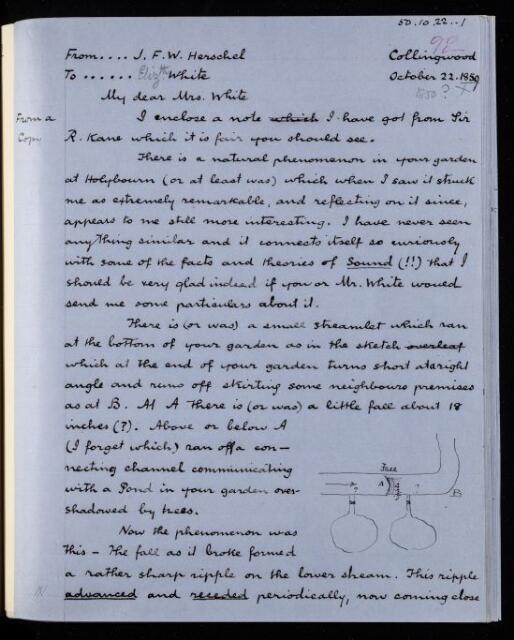 50.10.22..1
92
From.... J. F. W. Herschel
Collingwood
To ...... Elizth White
October 22. 1859
1850 ? X
My dear Mrs. White
From a
Copy
I enclose a note which I have got from Sir
R. Kane which it is fair you should see.
There is a natural phenomenon in your garden
at Holybourn (or at least was) which when I saw it struck
me as extremely remarkable, and reflecting on it since,
appears to me still more interesting. I have never seen
any thing similar and it connects itself so curiously
with some of the facts and theories of Sound (!!) that I
should be very glad indeed if you or Mr. White would
send me some particulars about it.
There is (or was) a small streamlet which ran
at the bottom of your garden as in the sketch overleaf
which at the end of your garden turns short at a right
angle and runs off skirting some neighbours premises
as at B. At A there is (or was) a little fall about 18
inches (?). Above or below A
(I forget which) ran off a con-
necting channel communicating
with a Pond in your garden over-
shadowed by trees.
A
B
? ?
Now the phenomenon was
this – The fall as it broke formed
a rather sharp ripple on the lower stream. This ripple
advanced and receded periodically, now coming close